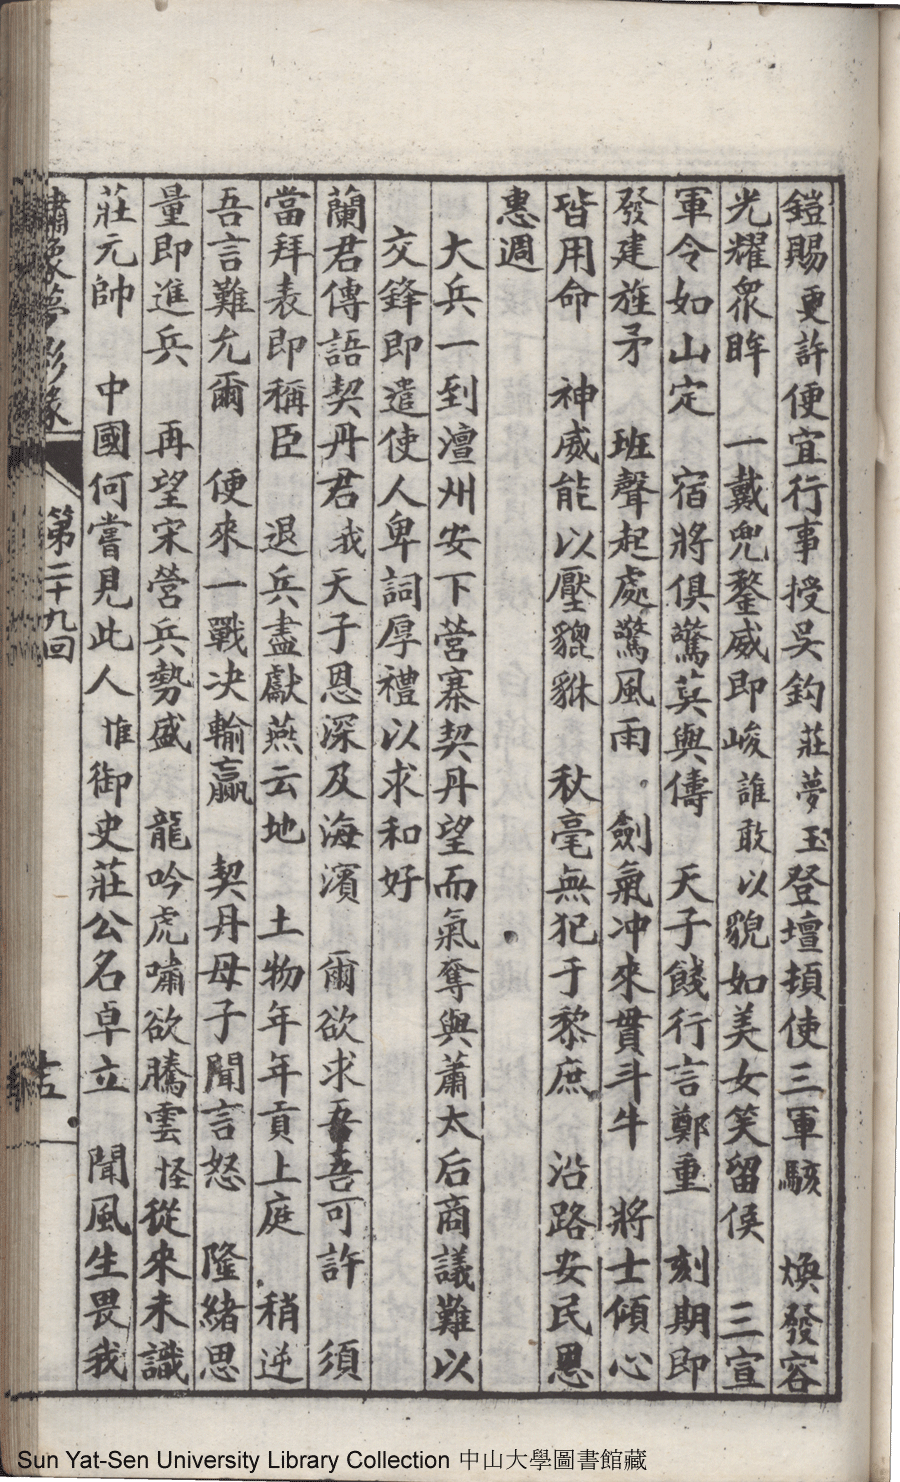 鎧賜 更許便宜行事授吳鈎 莊夢玉登壇頓使三軍駭 煥發容
光耀眾眸 一戴兜鍪威即峻 誰敢以貌如美女笑留侯 三宣
軍令如山定 宿將俱驚莫與儔 天子餞行言鄭重 刻期即
發建旌矛 班聲起處驚風雨 劍氣冲來貫斗牛 將士傾心
皆用命 神威能以壓貔貅 秋毫無犯于黎庶 沿路安民恩
惠週
大兵一到澶州安下營寨契丹望而氣奪與蕭太后商議難以
交鋒即遣使人卑詞厚禮以求和好
蘭君傳語契丹君 我天子恩深及海濱 爾欲求吾吾可許 須
當拜表即稱臣 退兵盡獻燕云地 土物年年貢上庭 稍逆
吾言難允爾 便來一戰决輸贏 契丹母子聞言怒 隆緒思
量即進兵 再望宋營兵勢盛 龍吟虎嘯欲騰雲 怪從來未識
莊元帥 中國何嘗見此人 惟御史莊公名卓立 聞風生畏我
繡像夢影緣 第二十九回
Sun Yat-Sen University Library Collection 中山大學圖書館藏